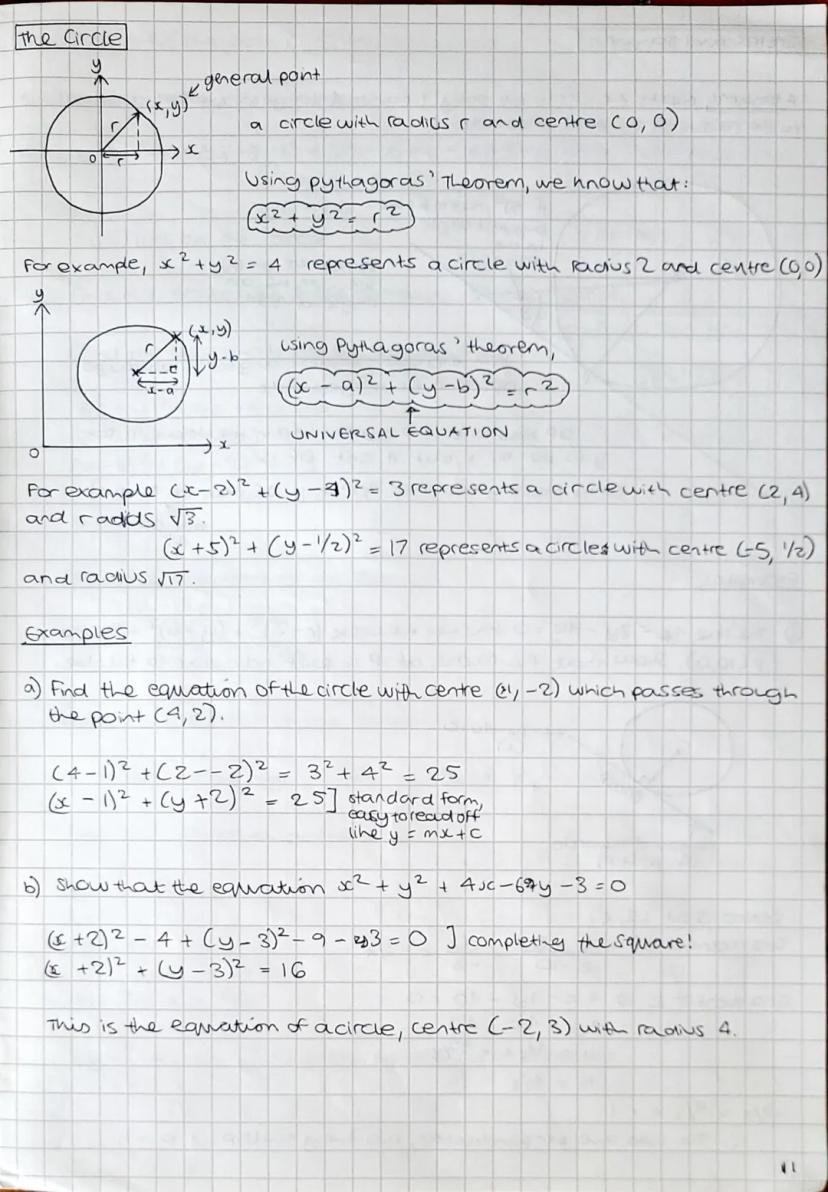 the Circle
y
general point
(x,y)
r
a circle with radius r and centre (0,0)
0
r
x
Using pythagoras' Theorem, we know that:
x² + y² = r²
For example, x² + y² = 4 represents a circle with radius 2 and centre (0,0)
y
(x,y)
r
y-b
x-a
using Pythagoras' theorem,
(x - a)² + (y - b)² = r²
UNIVERSAL EQUATION
0
x
For example (x-2)² + (y-4)² = 3 represents a circle with centre (2,4)
and radius √3.
(x+5)² + (y-1/2)² = 17 represents a circle with centre (-5, 1/2)
and radius √17.
Examples
a) Find the equation of the circle with centre (1, -2) which passes through
the point (4,2).
(4-1)² + (2--2)² = 3² + 4² = 25
(x - 1)² + (y + 2)² = 25] standard form,
easy to read off
like y = mx + c
b) Show that the equation x² + y² + 4x - 6y - 3 = 0
(x+2)² - 4 + (y-3)² - 9 - 3 = 0 ] completing the square!
(x + 2)² + (y - 3)² = 16
This is the equation of a circle, centre (-2, 3) with radius 4.
11